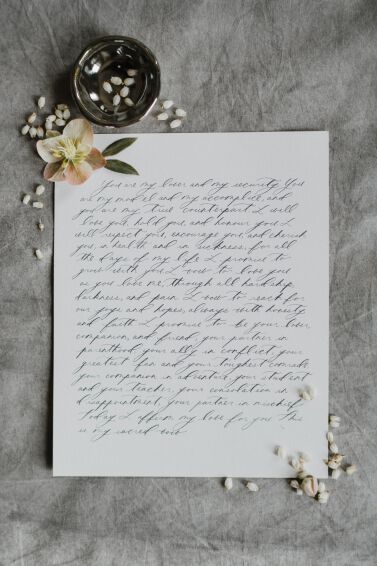 You are my lover and my security. You
are my model and my accomplice, and
you are my true counterpart. I will
love you, hold you, and honour you. I
will respect you, encourage you, and cherish
you, in health and in sickness, for all
the days of my life. I promise to
grow with you. I vow to love you
as you love me, through all hardship,
darkness, and pain. I vow to reach for
our joys and hopes, always with honesty
and faith. I promise to be your lover,
companion, and friend, your partner in
parenthood, your ally in conflict, your
greatest fan and your toughest comrade,
your companion in adventure, your student
and your teacher, your consolation in
disappointment, your partner in mischief.
Today, I affirm my love for you. This
is my sacred vow.